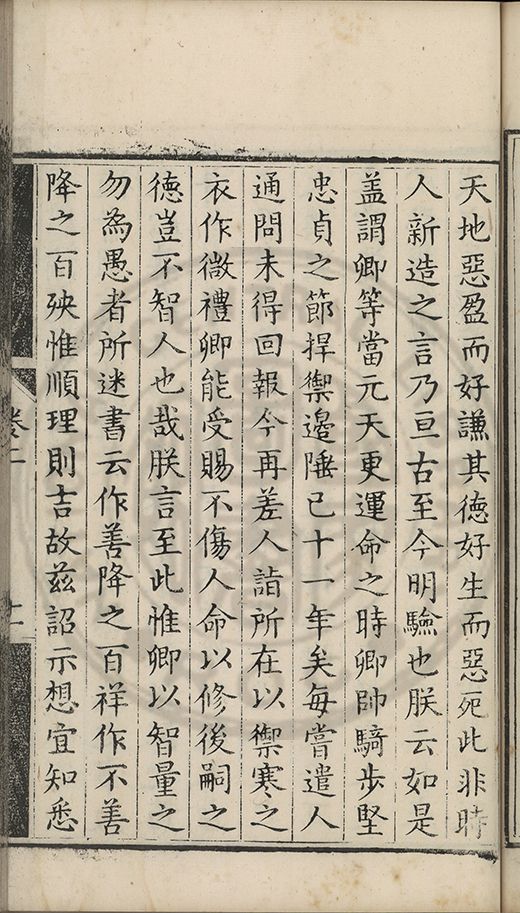 天地惡盈而好謙其德好生而惡死此非時
人新造之言乃亘古至今明驗也朕云如是
盖謂卿等當元天更運命之時卿帥騎步堅
忠貞之節捍禦邊陲已十一年矣每嘗遣人
通問未得回報今再差人詣所在以禦寒之
衣作微禮卿能受賜不傷人命以修後嗣之
德豈不智人也哉朕言至此惟卿以智量之
勿為愚者所迷書云作善降之百祥作不善
降之百殃惟順理則吉故茲詔示想宜知悉
卷二